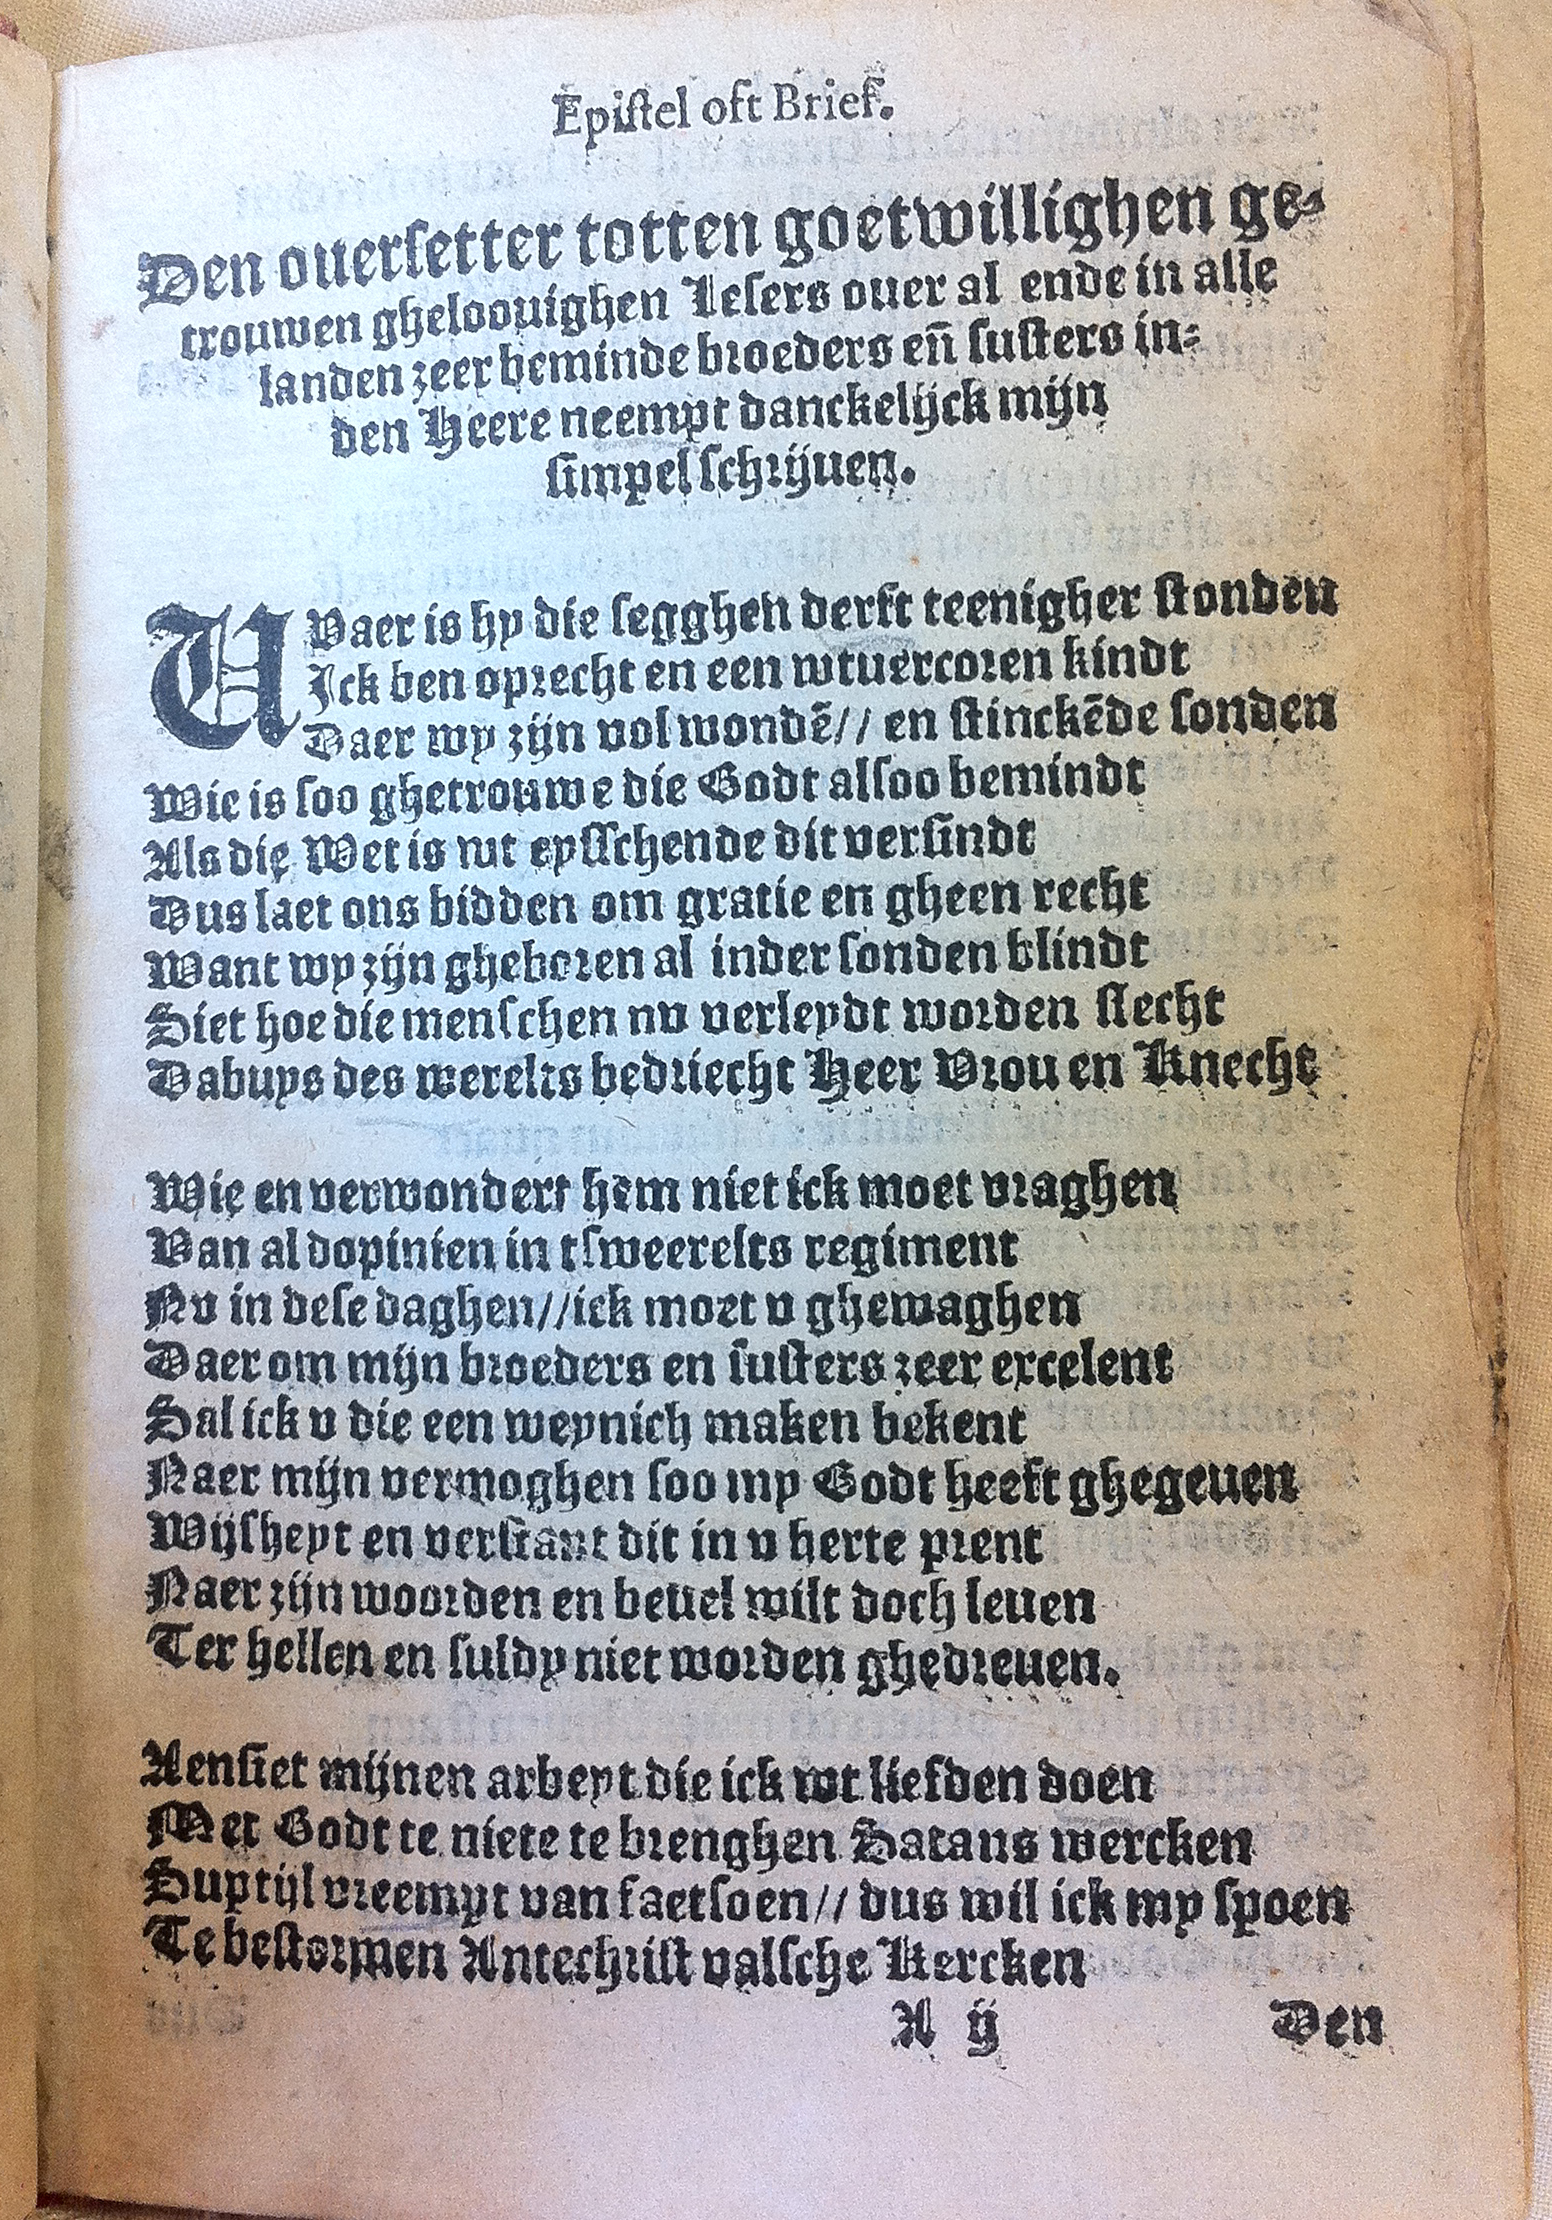 Epistel oft Brief.
Den ouersetter totten goetwillighen ge-
trouwen gheloouighen Lesers ouer al ende in alle
landen zeer beminde broeders eñ susters in-
den Heere neempt danckelijck mijn
simpel schrijuen.
UVaer is hy die segghen derft teenigher stonden
Ick ben oprecht en een wtuercoren kindt
Daer wy zijn vol wondẽ// en stinckẽde sonden
Wie is soo ghetrouwe die Godt alsoo bemindt
Als die Wet is wt eysschende dit versindt
Dus laet ons bidden om gratie en gheen recht
Want wy zijn gheboren al inder sonden blindt
Siet hoe die menschen nv verleydt worden slecht
Dabuys des werelts bedriecht Heer Vrou en Knecht
Wie en verwondert hem niet ick moet vraghen
Van al dopinien in tsweerelts regiment
Nv in dese daghen//ick moet v ghewaghen
Daer om mijn broeders en susters zeer excelent
Sal ick v die een weynich maken bekent
Naer mijn vermoghen soo my Godt heeft ghegeuen
Wijsheyt en verstant dit in v herte prent
Naer zijn woorden en beuel wilt doch leuen
Ter hellen en suldy niet worden ghedreuen.
Aensiet mijnen arbeyt die ick wt liefden doen
Met Godt te niete te brenghen Satans wercken
Suptijl vreempt van faetsoen// dus wil ick my spoen
Te bestormen Antechrist valsche Kercken
A ij Den